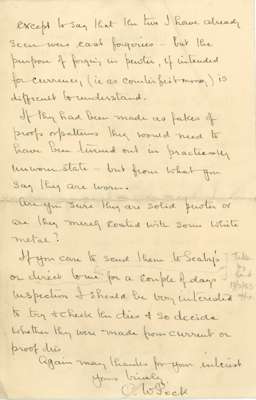 except to say that the two I have already
seen were cast forgeries - but the
purpose of forging in pewter, if intended
for currency (ie as counterfeit money) is
difficult to understand.
If they had been made as fakes of
proofs or patterns they would need to
have been turned out in practically
unworn state - but from what you
say they are worn.
Are you sure they are solid pewter or
are they merely coated with some white
metal?
If you care to send them to Seaby's
or direct to me for a couple of days
inspection I should be very interested
to try & check the dies & so decide
whether they were made from current or
proof dies.
Again many thanks for your interest
yours sincerely
C W Peck